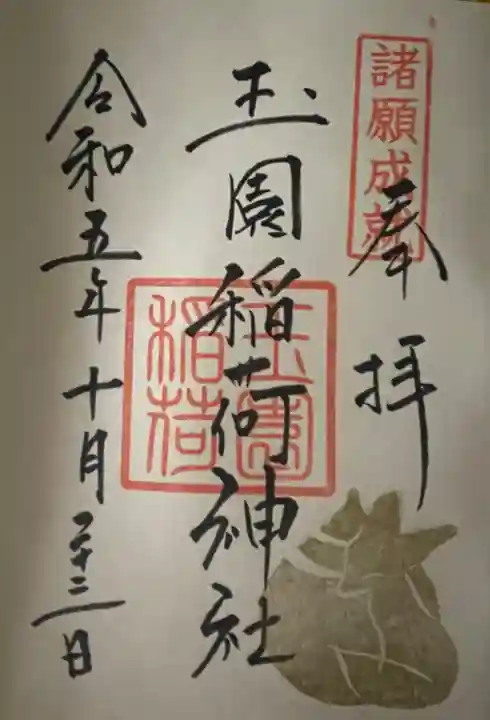 諸願成就
奉拝
玉園稲荷神社
玉園稲荷
令和五年十月二十二日